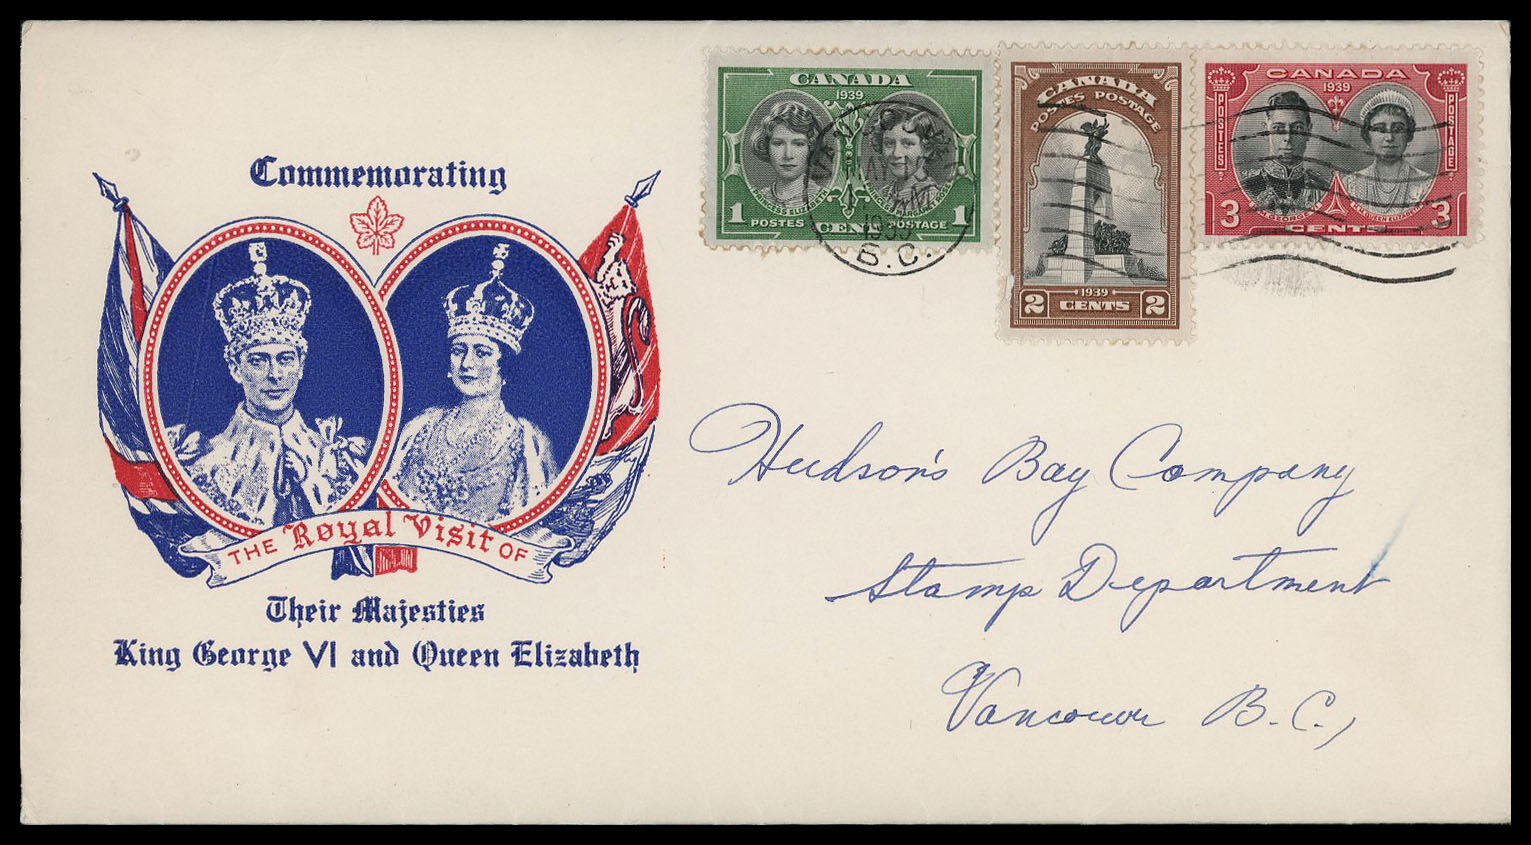 Commemorating
THE Royal Visit OF
Their Majesties
King George VI and Queen Elizabeth
CANADA
1939
PRINCESS ELIZABETH
PRINCESS MARGARET ROSE
1 POSTES CENT POSTAGE 1
B.C.
CANADA
POSTES POSTAGE
1939
2 CENTS 2
CANADA
1939
POSTES
POSTAGE
3 CENTS 3
Hudson's Bay Company
Stamp Department
Vancouver B.C.,